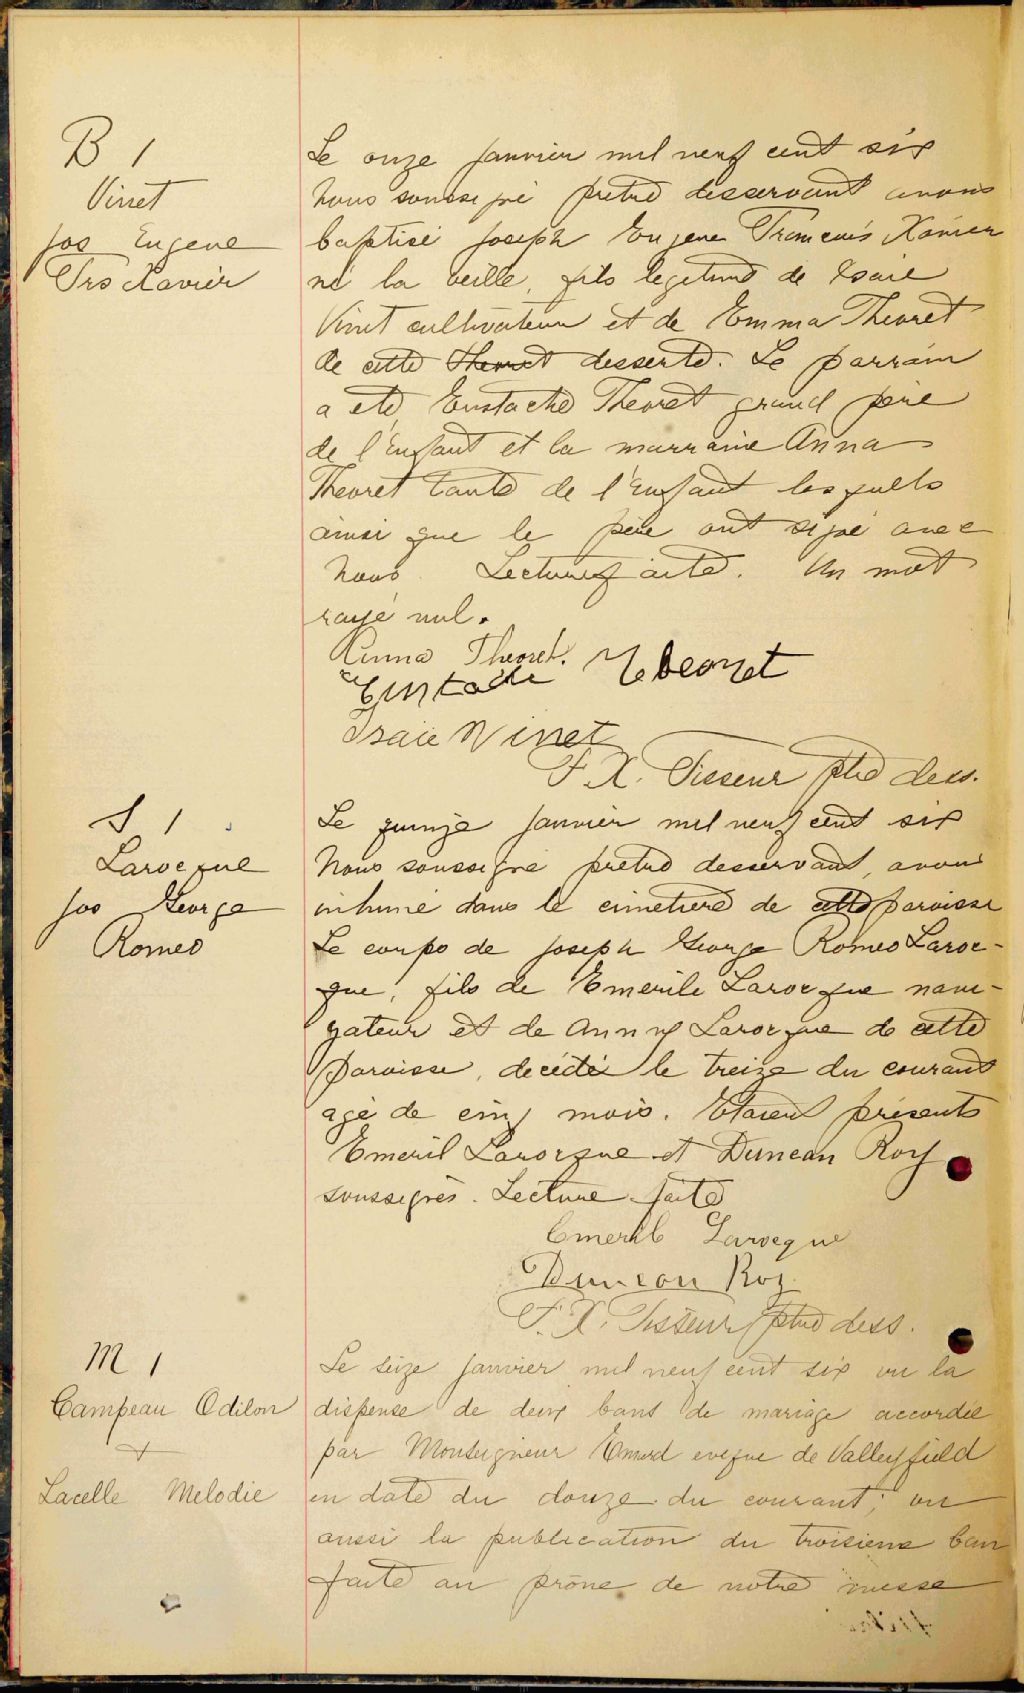 B 1
Vinet
Jos Eugene
Frs Xavier
Le onze janvier mil neuf cent six
nous soussigné prêtre desservant avons
baptisé Joseph Eugene Francois Xavier
né la veille, fils legitime de Isaie
Vinet cultivateur et de Emma Theoret
de cette Theoret desserte. Le parrain
a ete Eustache Theoret grand père
de l'Enfant et la marraine Anna
Theoret tante de l'Enfant lesquels
ainsi que le père ont signé avec
nous. Lecture faite. Un mot
rayé nul.
Anna Theoret.
Eustache Theoret
Isaie Vinet
F. X. Tisseur ptre dess.
S 1
Larocque
Jos George
Romeo
Le quinze janvier mil neuf cent six
nous soussigné prêtre desservant, avons
inhumé dans le cimetiere de cette paroisse
Le corps de Joseph George Romeo Laroc-
que, fils de Emerile Larocque navi-
gateur et de Anny Larocque de cette
paroisse, décédé le treize du courant
agé de cinq mois. Etaient présents
Emeril Larocque et Duncan Roy
soussignés. Lecture faite
Emeril Larocque
Duncan Roy
F. X. Tisseur ptre dess.
M 1
Campeau Odilon
+
Lacelle Melodie
Le seize janvier mil neuf cent six vu la
dispense de deux bans de mariage accordée
par Monseigneur Emard eveque de Valleyfield
en date du douze du courant; vu
aussi la publication du troisieme ban
faite au prône de notre messe